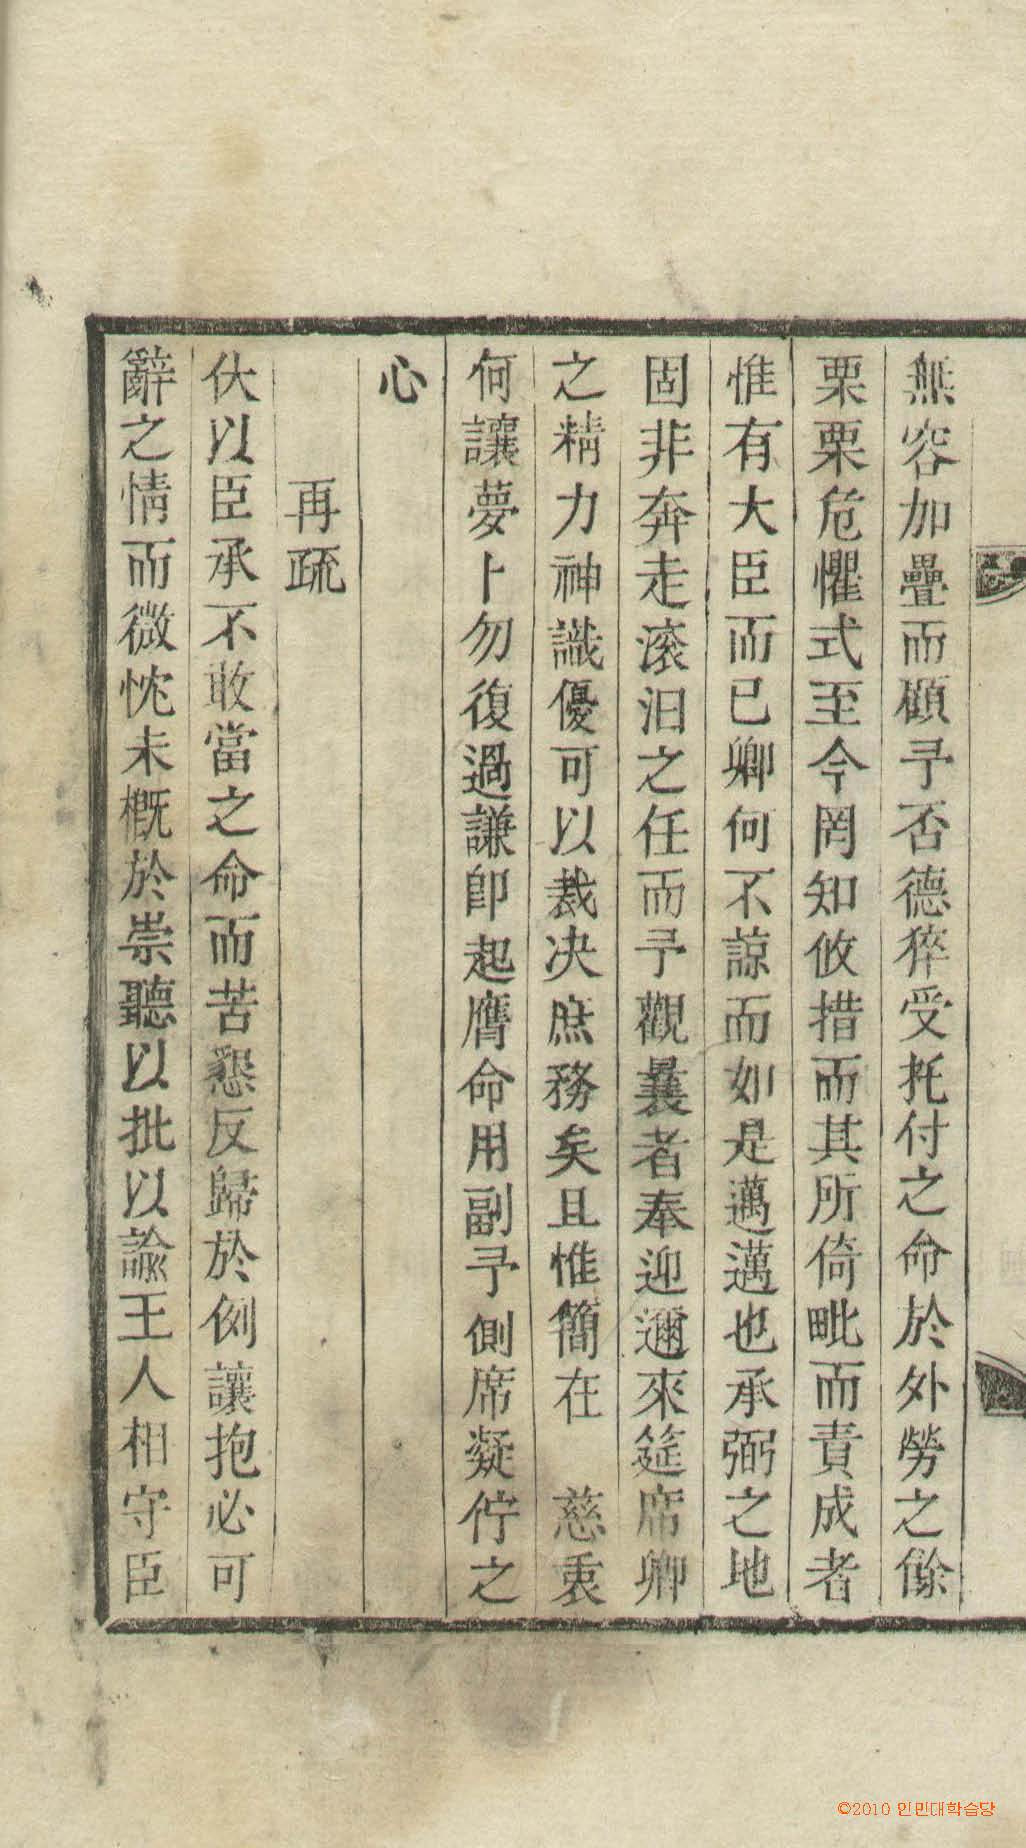 無容加疊而顧予否德猝受托付之命於外勞之餘
栗栗危懼式至今罔知攸措而其所倚毗而責成者
惟有大臣而已卿何不諒而如是邁邁也承弼之地
固非奔走滚汨之任而予觀曩者奉迎邇來筵席卿
之精力神識優可以裁决庶務矣且惟簡在　慈衷
何讓夢卜勿復過謙卽起膺命用副予側席凝佇之
心
再疏
伏以臣承不敢當之命而苦懇反歸於例讓抱必可
辭之情而微忱未槪於崇聽以批以諭王人相守臣
©2010 인민대학습당